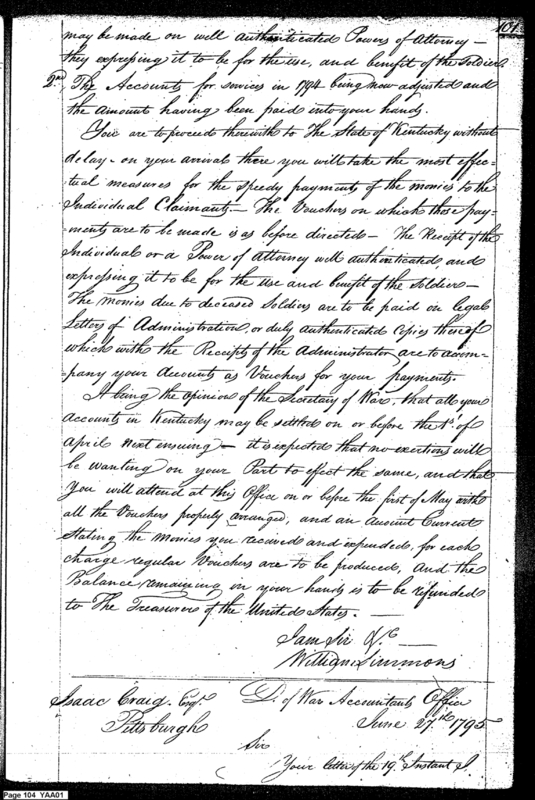 101
may be made on well authenticated Powers of Attorney —
they expressing it to be for the use, and benefit of the Soldier
2nd, The Accounts for services in 1794 being now adjusted and
the amount having been paid into your hands
You are to proceed therewith to The State of Kentucky without
delay - on your arrival there you will take the most effec-
tual measures for the speedy payments of the monies to the
Individual Claimants — The Vouchers on which those pay-
ments are to be made is as before directed — The Receipt of the
Individual or a Power of Attorney well authenticated, and
expressing it to be for the Use and benefit of the Soldier —
The monies due to deceased Soldiers are to be paid on legal
Letters of Administration, or duly authenticated Copies thereof
which with the Receipts of the Administrator are to accom-
pany your Accounts as Vouchers for your payments.
It being the opinion of the Secretary of War, that all your
Accounts in Kentucky may be settled on or before the 1st of
April next ensuing — it is expected that no exertions will
be wanting on your Part to effect the same, and that
You will attend at this Office on or before the first of May with
all the Vouchers properly arranged, and an Account Current
Stating the monies you received and expended, for each
charge regular Vouchers are to be produced, and the
Balance remaining in your hands is to be refunded
to The Treasurer of the United States. —
I am Sir &c —
William Simmons
Isaac Craig. Esqr. D. of War Accountants Office
Pittsburgh June 27th 1795
Sir
Your letter of the 19th Instant I.
Page 104 YAA01